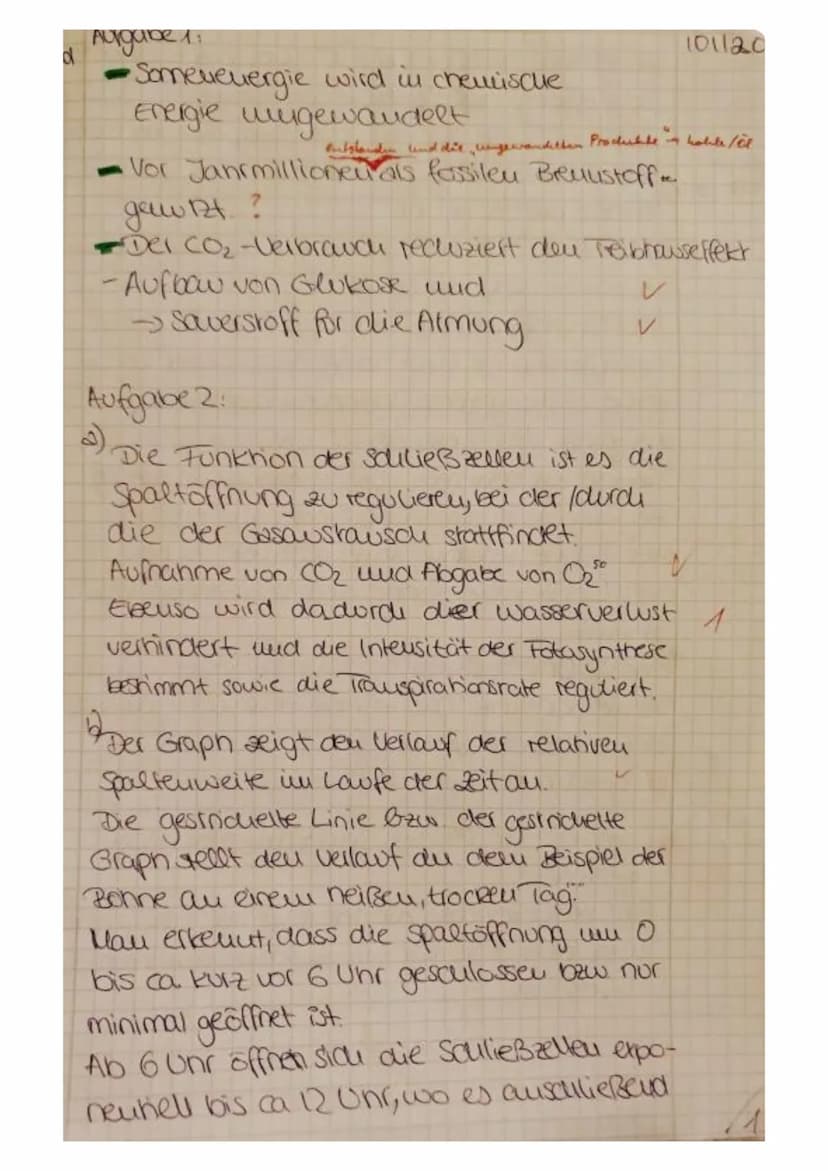 Aufgabe 1:
10.11.20
- Sonnenenergie wird in chemische
Energie umgewandelt
entstanden und die "umgewandelten Produkte" → Kohle/Öl
- Vor Jahrmillionen als fossilen Brennstoffe
genutzt ?
- Der CO₂-Verbrauch reduziert den Treibhauseffekt
- Aufbau von Glukose und
→ Sauerstoff für die Atmung
Aufgabe 2:
a)
Die Funktion der Schließzellen ist es die
Spaltöffnung zu regulieren, bei der /durch
die der Gasaustausch stattfindet.
Aufnahme von CO₂ und Abgabe von O₂
Ebenso wird dadurch der Wasserverlust
1
verhindert und die Intensität der Fotosynthese
bestimmt sowie die Transpirationsrate reguliert.
b)
Der Graph zeigt den Verlauf der relativen
Spaltenweite im Laufe der Zeit an.
Die gestrichelte Linie bzw. der gestrichelte
Graph stellt den Verlauf an dem Beispiel der
Bohne an einem heißen, trocken Tag.
Man erkennt, dass die Spaltöffnung um 0
bis ca. kurz vor 6 Uhr geschlossen bzw nur
minimal geöffnet ist.
Ab 6 Uhr öffnen sich die Schließzellen expo-
nentiell bis ca 12 Uhr, wo es anschließend
/1